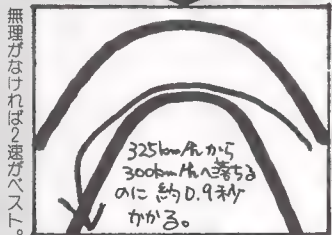 無理がなければ2速がベスト。
325km/hから
300km/hへ落ちる
のに 約0.9秒
かかる。